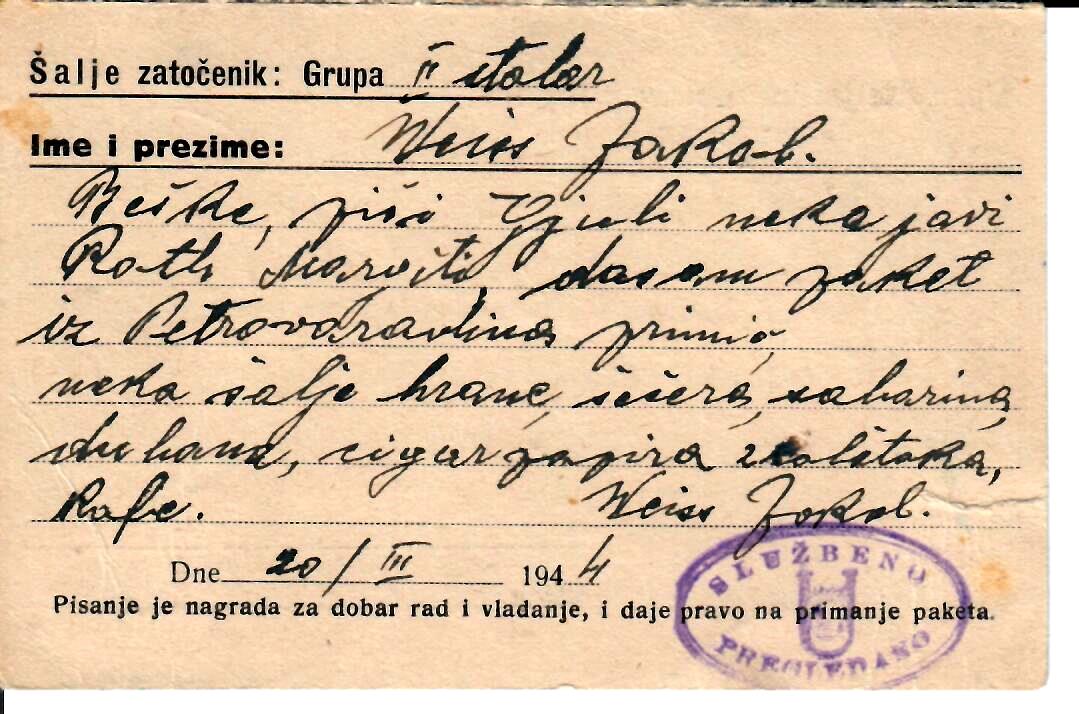 Šalje zatočenik: Grupa II stolar
Ime i prezime: Weiss Jakob.
piši Gjuli neka javi
Roth Margiti, dasam paket
iz Petrovaradina primio,
neka šalje hrane, šećera, saharina,
duhana, cigarpapira
Kafe. Weiss Jakob.
Dne 20/III 1944
Pisanje je nagrada za dobar rad i vladanje, i daje pravo na primanje paketa.
SLUŽBENO
PREGLEDANO